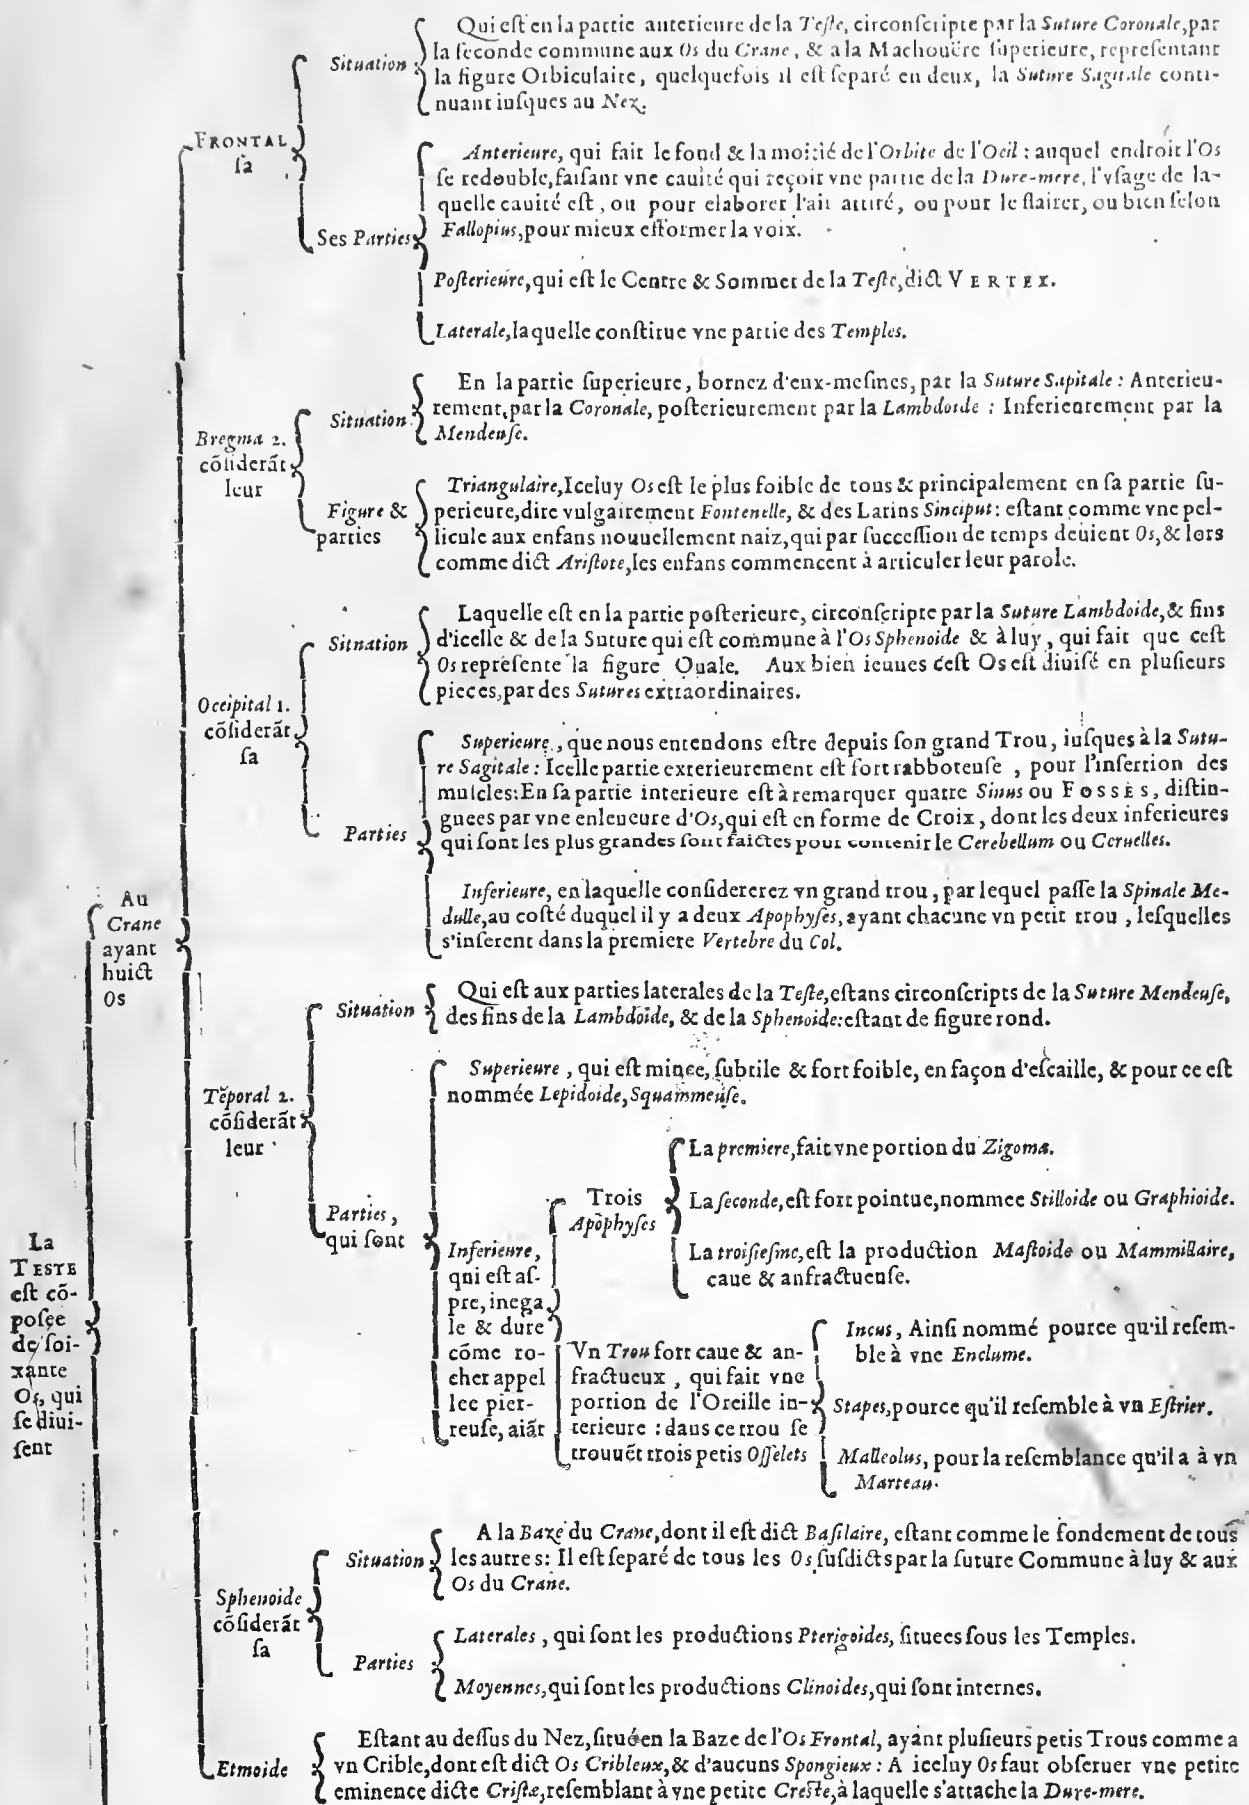 La
TESTE
eſt cō-
poſée
de ſoi-
xante
Os, qui
ſe diui-
ſent
Au
Crane
ayant
huict
Os
FRONTAL
ſa
Situation
Qui eſt en la partie anterieure de la Teſte, circonſcripte par la Suture Coronale, par
la ſeconde commune aux Os du Crane, & a la Machouëre ſuperieure, repreſentant
la figure Orbiculaire, quelquefois il eſt ſeparé en deux, la Suture Sagitale conti-
nuant iuſques au Nez.
Ses Parties
Anterieure, qui fait le fond & la moitié de l'Orbite de l'Oeil : auquel endroit l'Os
ſe redouble, faiſant vne cauité qui reçoit vne partie de la Dure-mere, l'vſage de la-
quelle cauité eſt, ou pour elaborer l'air attiré, ou pour le flairer, ou bien ſelon
Fallopius, pour mieux efformer la voix.
Poſterieure, qui eſt le Centre & Sommet de la Teſte, dict VERTEX.
Laterale, laquelle conſtitue vne partie des Temples.
Bregma 2.
cōſiderāt
leur
Situation
En la partie ſuperieure, bornez d'eux-meſmes, par la Suture Sapitale : Anterieu-
rement, par la Coronale, poſterieurement par la Lambdoide : Inferieurement par la
Mendeuſe.
Figure &
parties
Triangulaire, Iceluy Os eſt le plus foible de tous & principalement en ſa partie ſu-
perieure, dite vulgairement Fontenelle, & des Latins Sinciput : eſtant comme vne pel-
licule aux enfans nouuellement naiz, qui par ſucceſſion de temps deuient Os, & lors
comme dict Ariſtote, les enfans commencent à articuler leur parole.
Occipital 1.
cōſiderāt
ſa
Situation
Laquelle eſt en la partie poſterieure, circonſcripte par la Suture Lambdoide, & fins
d'icelle & de la Suture qui eſt commune à l'Os Sphenoide & à luy, qui fait que ceſt
Os repreſente la figure Ouale. Aux bien ieunes ceſt Os eſt diuiſé en pluſieurs
pieces, par des Sutures extraordinaires.
Parties
Superieure, que nous entendons eſtre depuis ſon grand Trou, iuſques à la Sutu-
re Sagitale : Icelle partie exterieurement eſt fort rabboteuſe, pour l'inſertion des
muſcles : En ſa partie interieure eſt à remarquer quatre Sinus ou FOSSES, diſtin-
guees par vne enleueure d'Os, qui eſt en forme de Croix, dont les deux inferieures
qui ſont les plus grandes ſont faictes pour contenir le Cerebellum ou Ceruelles.
Inferieure, en laquelle conſidererez vn grand trou, par lequel paſſe la Spinale Me-
dulle, au coſté duquel il y a deux Apophyſes, ayant chacune vn petit trou, leſquelles
s'inſerent dans la premiere Vertebre du Col.
Tēporal 2.
cōſiderāt
leur
Situation
Qui eſt aux parties laterales de la Teſte, eſtans circonſcripts de la Suture Mendeuſe,
des fins de la Lambdoide, & de la Sphenoide : eſtant de figure rond.
Parties,
qui ſont
Superieure, qui eſt mince, ſubtile & fort foible, en façon d'eſcaille, & pour ce eſt
nommée Lepidoide, Squammeuſe.
Inferieure,
qui eſt aſ-
pre, inega
le & dure
cōme ro-
cher appel
lee pier-
reuſe, aiāt
Trois
Apophyſes
La premiere, fait vne portion du Zigoma.
La ſeconde, eſt fort pointue, nommee Stilloide ou Graphioide.
La troiſieſme, eſt la production Maſtoide ou Mammillaire,
caue & anfractueuſe.
Vn Trou fort caue & an-
fractueux, qui fait vne
portion de l'Oreille in-
terieure : dans ce trou ſe
trouuēt trois petis Oſſelets
Incus, Ainſi nommé pource qu'il reſem-
ble à vne Enclume.
Stapes, pource qu'il reſemble à vn Eſtrier.
Malleolus, pour la reſemblance qu'il a à vn
Marteau.
Sphenoide
cōſiderāt
ſa
Situation
A la Baze du Crane, dont il eſt dict Baſilaire, eſtant comme le fondement de tous
les autres : Il eſt ſeparé de tous les Os ſuſdicts par la ſuture Commune à luy & aux
Os du Crane.
Parties
Laterales, qui ſont les productions Pterigoides, ſituees ſous les Temples.
Moyennes, qui ſont les productions Clinoides, qui ſont internes.
Etmoide
Eſtant au deſſus du Nez, ſitué en la Baze de l'Os Frontal, ayant pluſieurs petis Trous comme a
vn Crible, dont eſt dict Os Cribleux, & d'aucuns Spongieux : A iceluy Os faut obſeruer vne petite
eminence dicte Criſtæ, reſemblant à vne petite Creſte, à laquelle s'attache la Dure-mere.